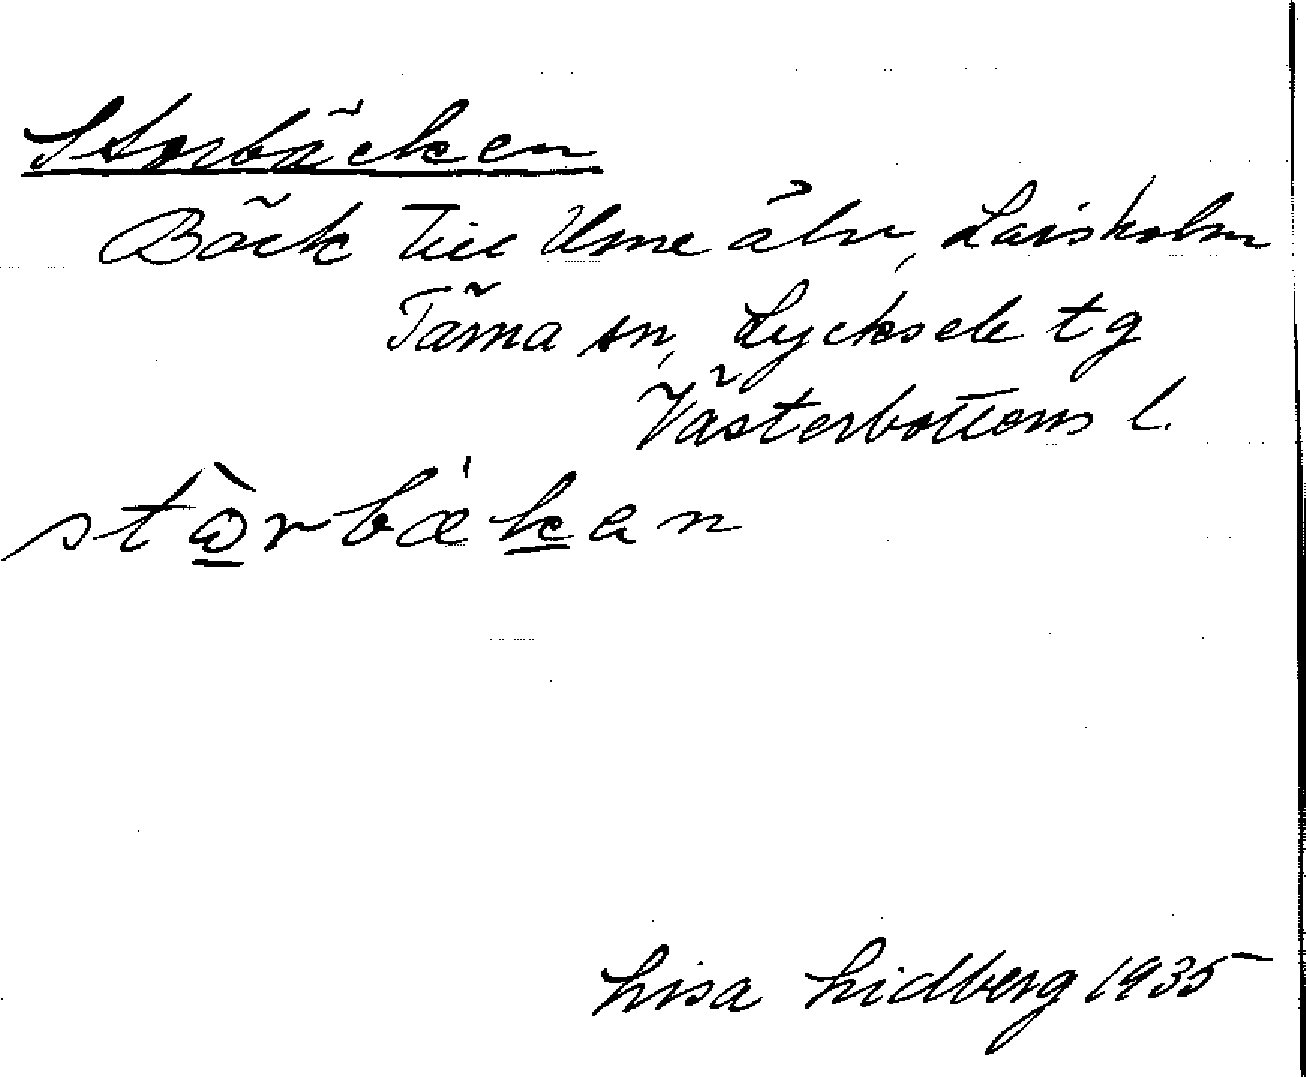 Storbäcken
Bäck till Ume älv, Laisholm
Tärna sn, Lycksele tg
Västerbottens l.
stò̱rbǽḵen
Lisa Lidberg 1935